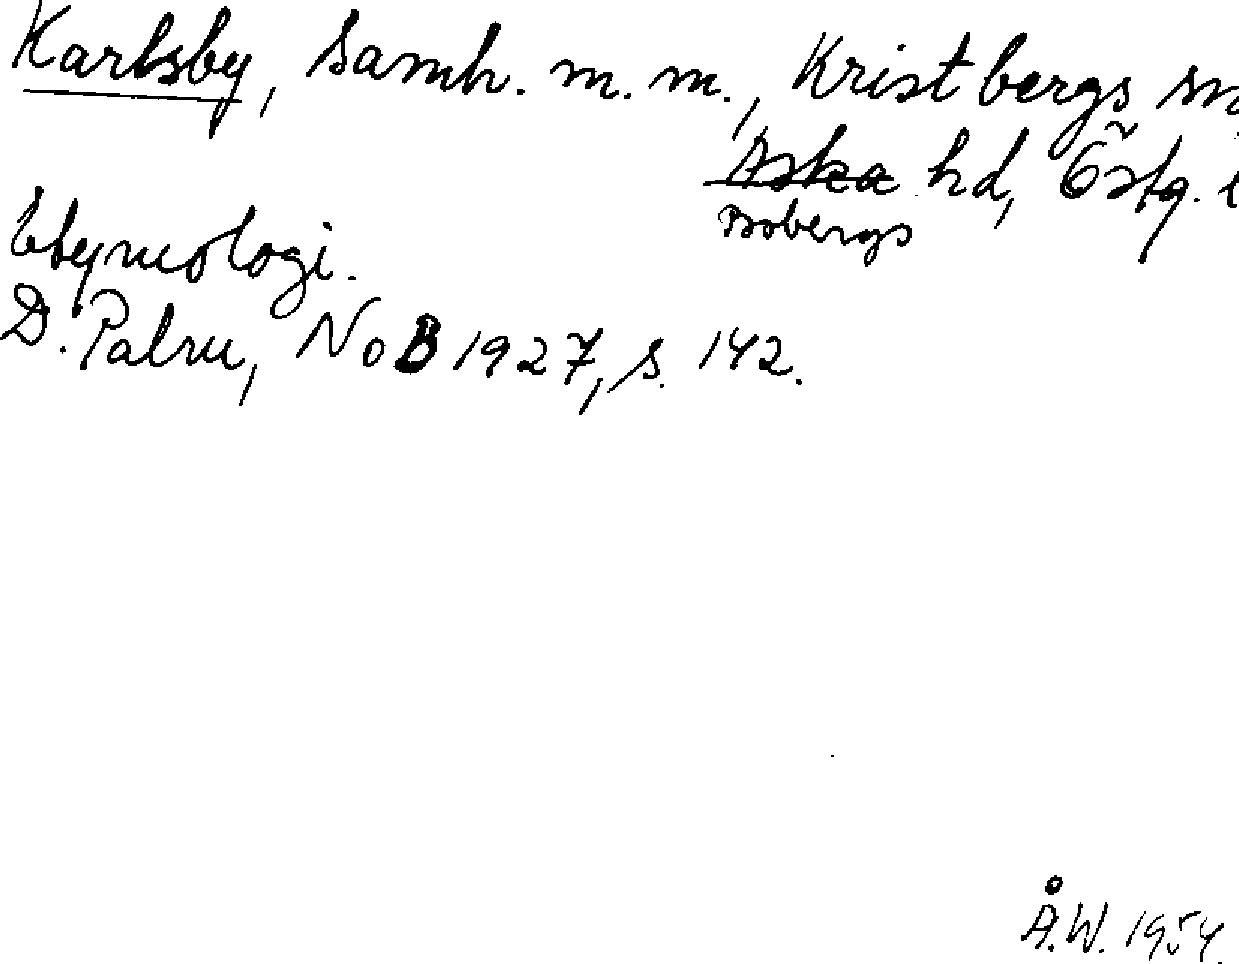 Karlsby, samh. m. m., Kristbergs sn,
Aska hd, Östg. l
Bobergs
Etymologi.
D. Palm, NoB 1927, s. 142.
Å.W. 1954.